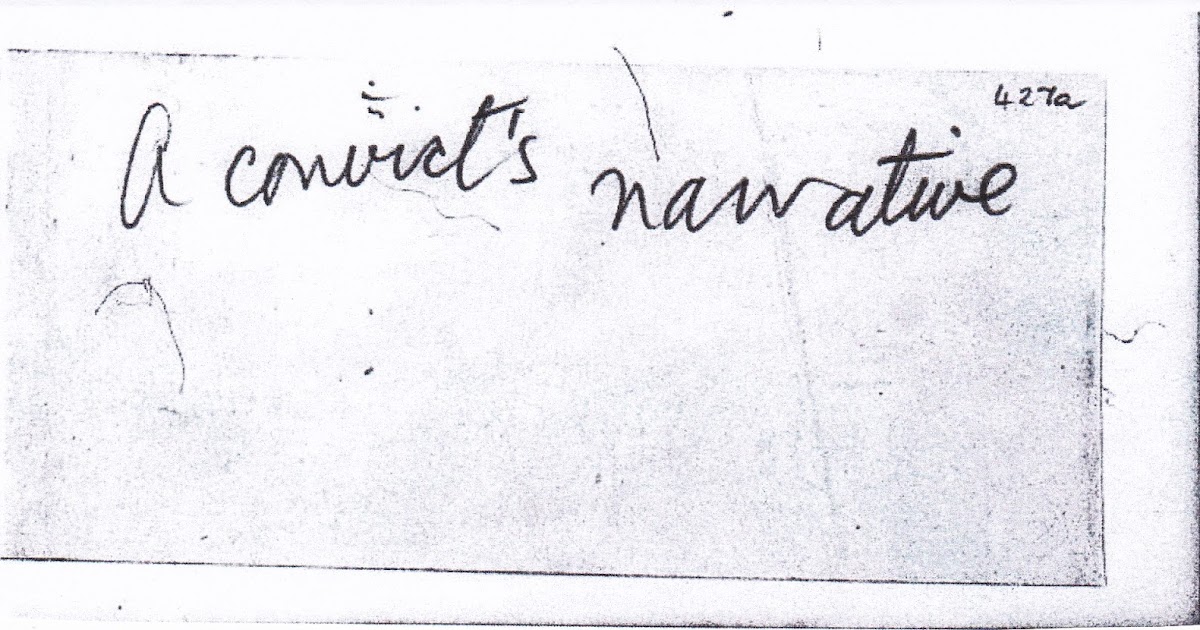 427a
A convict's narrative